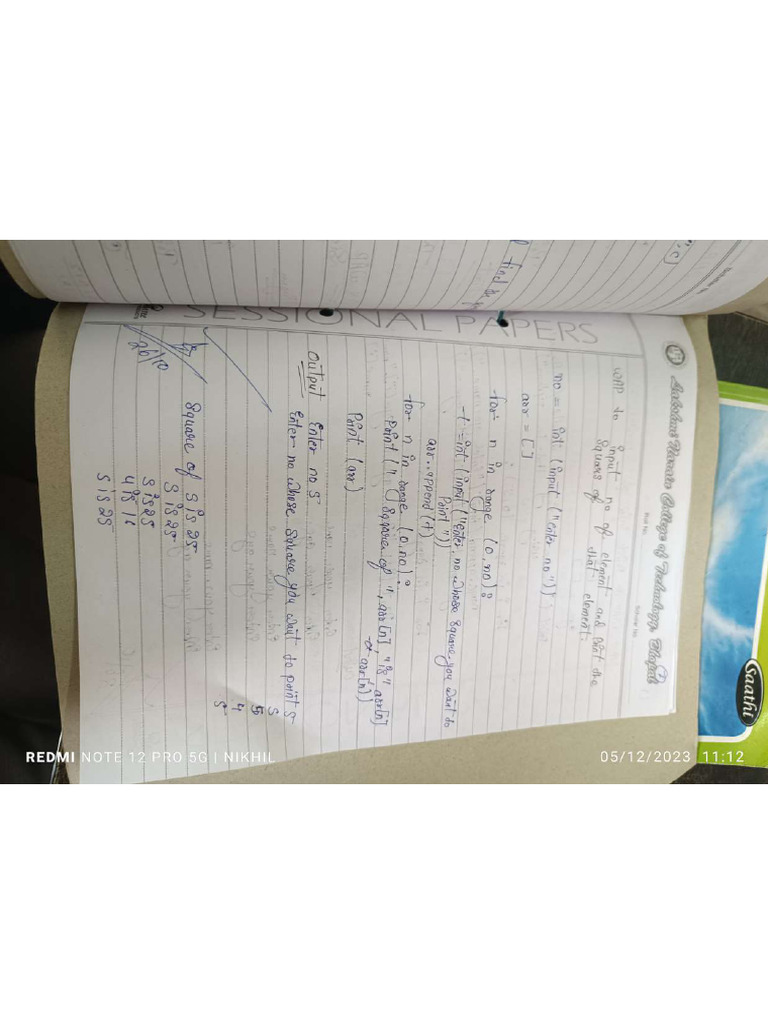 Lakshmi Narain College of Technology, Bhopal
Roll No.
Scholar No.
SESSIONAL PAPERS
WAP to input no of element and print the
Square of that element.
no = int (input ("enter no"))
arr = []
for n in range (0, no):
t = int (input ("enter, no whose square you want to
Print"))
arr.append (t)
for n in range (0, no):
Print (" Square of ", arr[n], "is" arr[n]
* arr[n])
Print (arr)
Output Enter no 5
Enter no whose square you want to print 5
5
5
4
5
Square of 5 is 25
5 is 25
5 is 25
4 is 16
5 is 25
26/10
find
Saathi
REDMI NOTE 12 PRO 5G | NIKHIL
05/12/2023 11:12